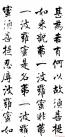 甚為希有何以故須菩提
如來說第一波羅蜜非第
一波羅蜜是名第一波羅
蜜須菩提忍辱波羅蜜